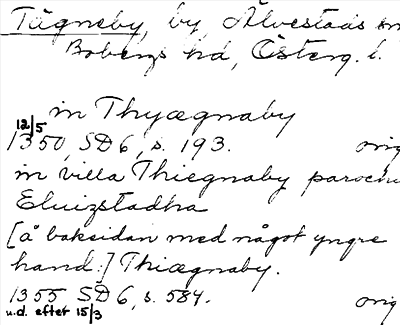 Tägneby, by, Älvestads sn
Bobergs hd, Österg. l.
in Thyægnaby
12/5
1350, SD 6, s. 193. orig
in villa Thiegnaby parochi
Eluizstadha
[å baksidan med något yngre
hand:] Thiægnaby.
1355 SD 6, s. 584. orig
u.d. efter 15/3